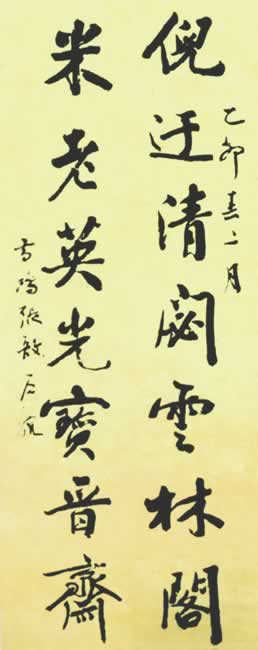 乙卯春二月
倪迂清閟雲林閣
米老英光寶晉齋
張